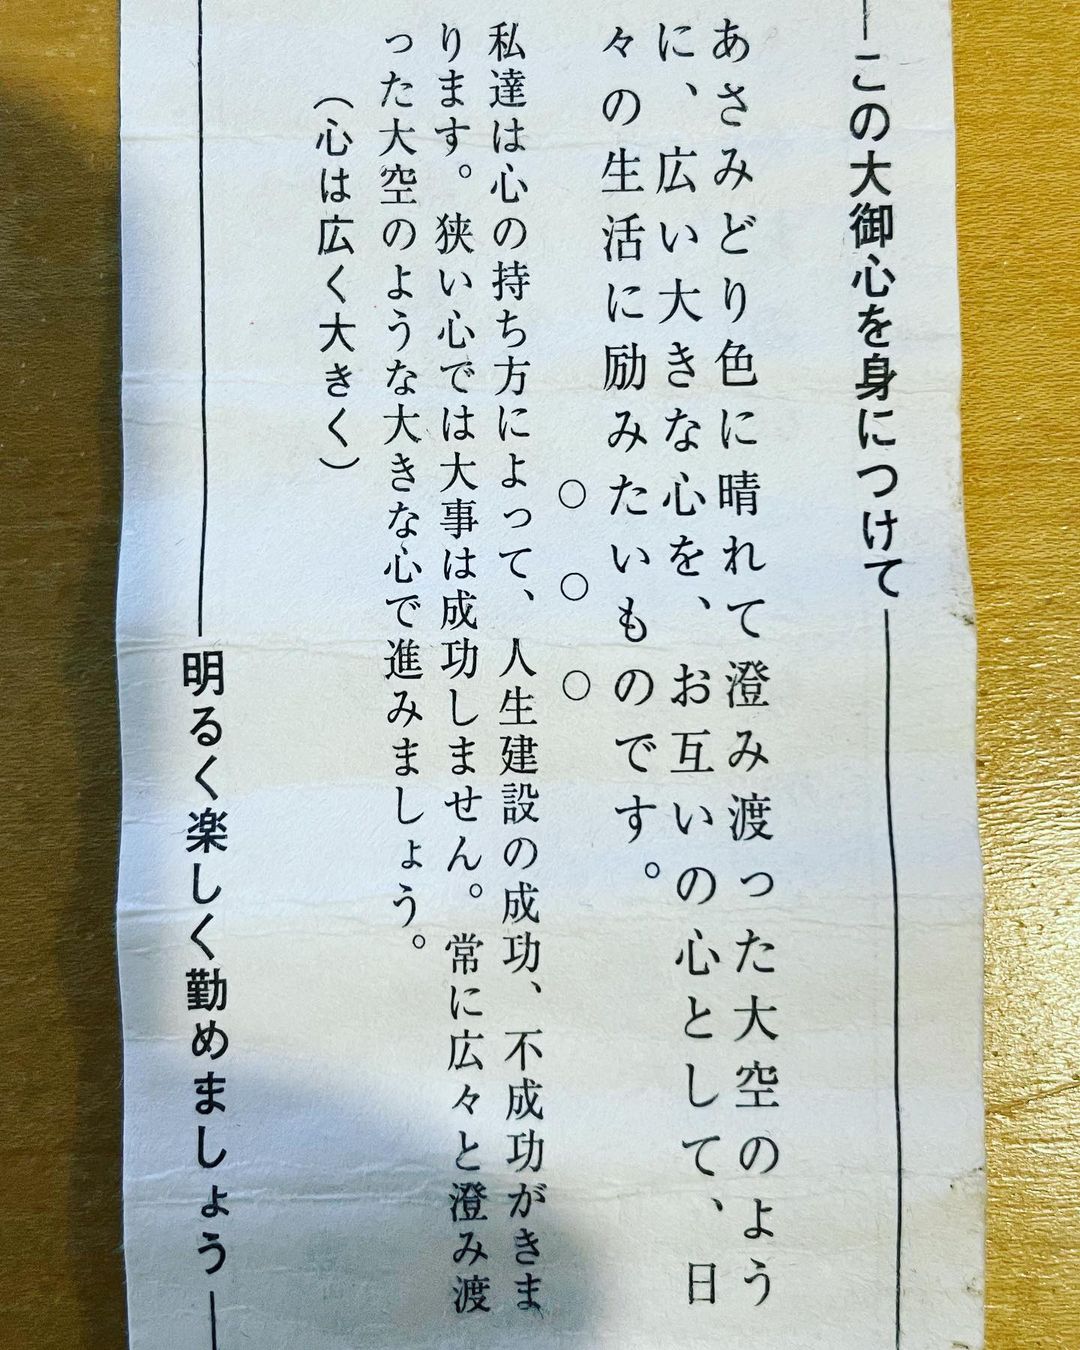 この大御心を身につけて
あさみどり色に晴れて澄み渡った大空のよう
に、広い大きな心を、お互いの心として、日
々の生活に励みたいものです。
○○○
私達は心の持ち方によって、人生建設の成功、不成功がきま
ります。狭い心では大事は成功しません。常に広々と澄み渡
った大空のような大きな心で進みましょう。
（心は広く大きく）
明るく楽しく勤めましょう